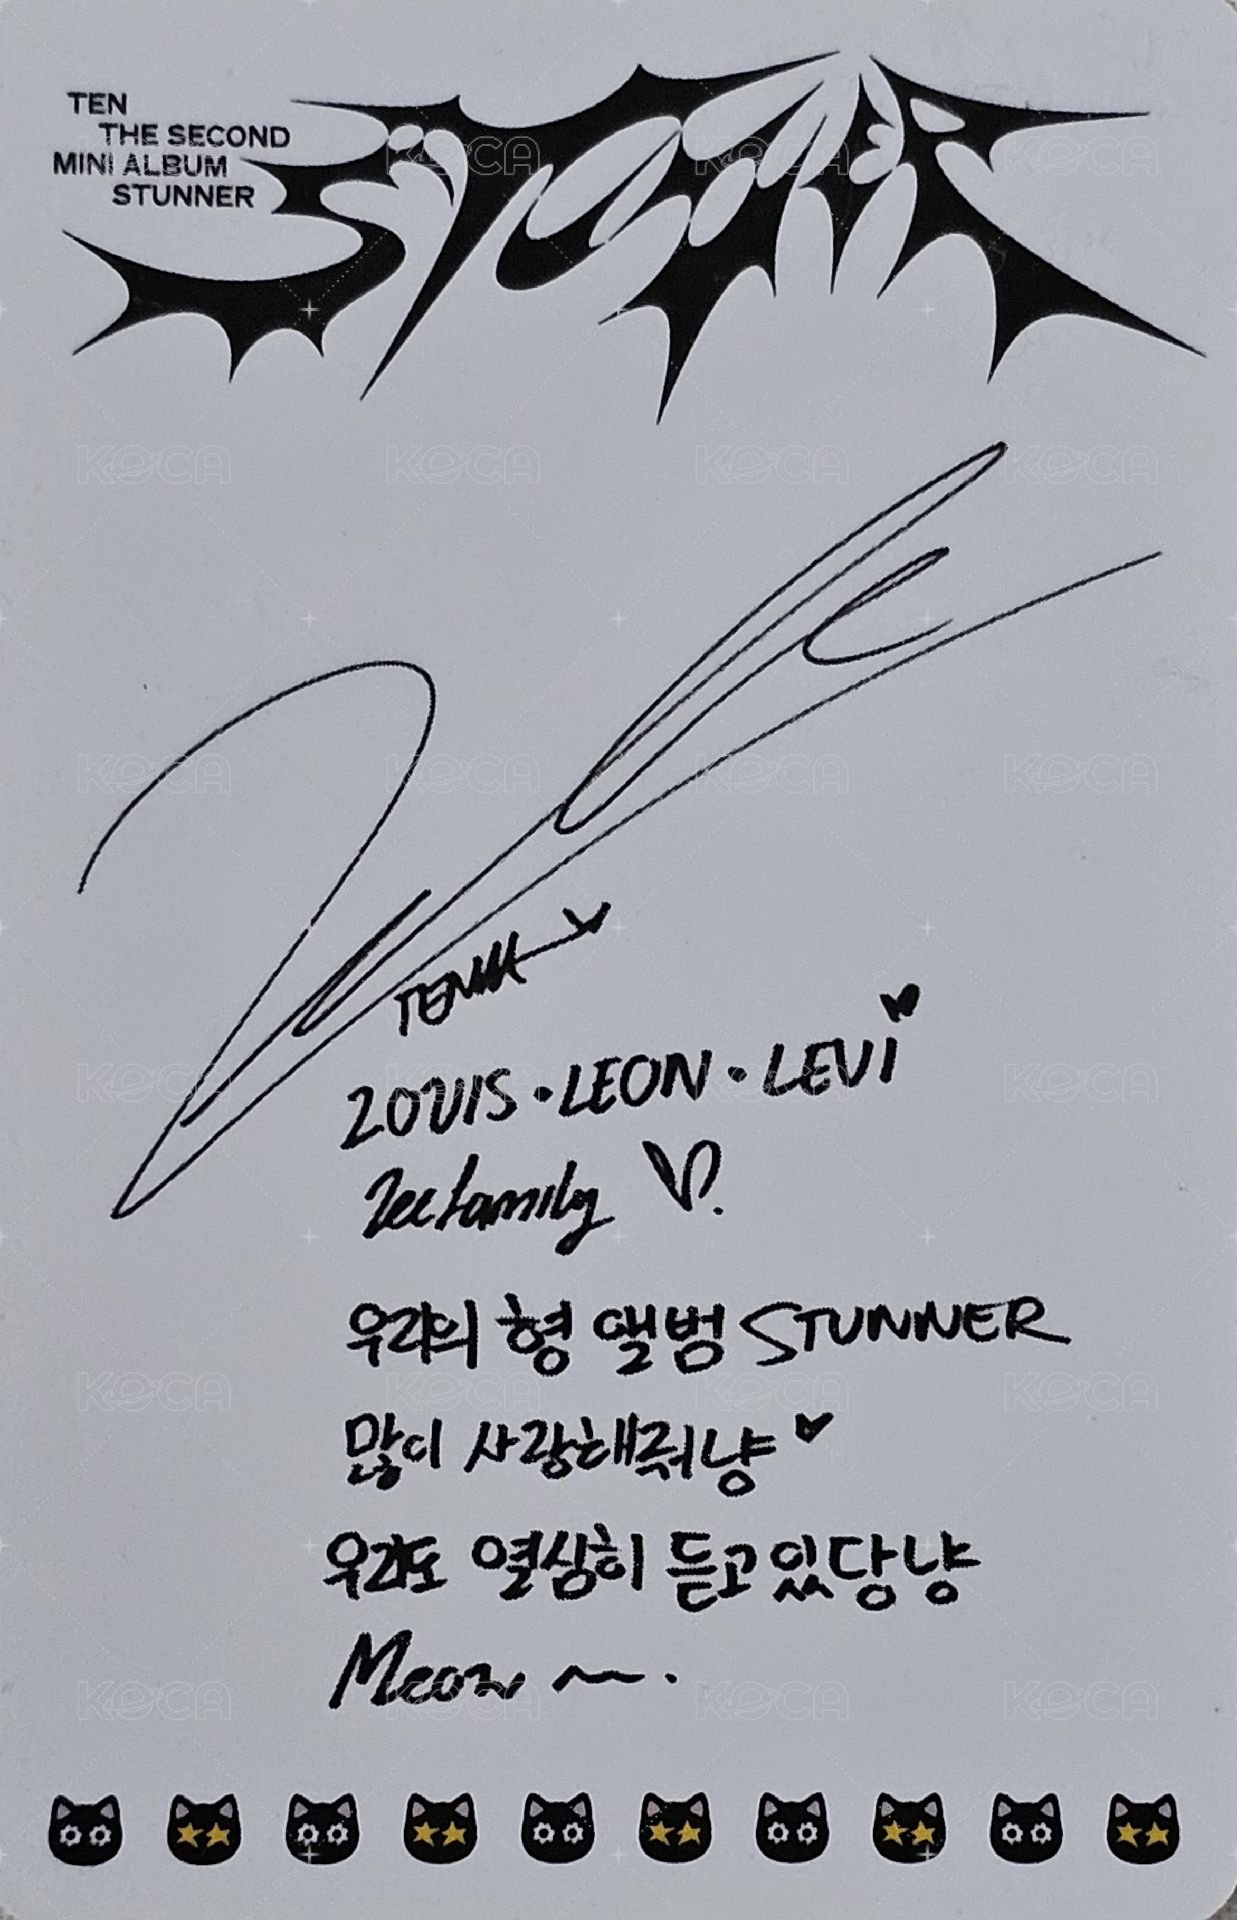 TEN
THE SECOND
MINI ALBUM
STUNNER
STUNNER
LOUIS · LEON · LEVI
Lee family
우리의 형 앨범 STUNNER
많이 사랑해줘냥
우리도 열심히 듣고있당냥
Meow ~.
KOCA